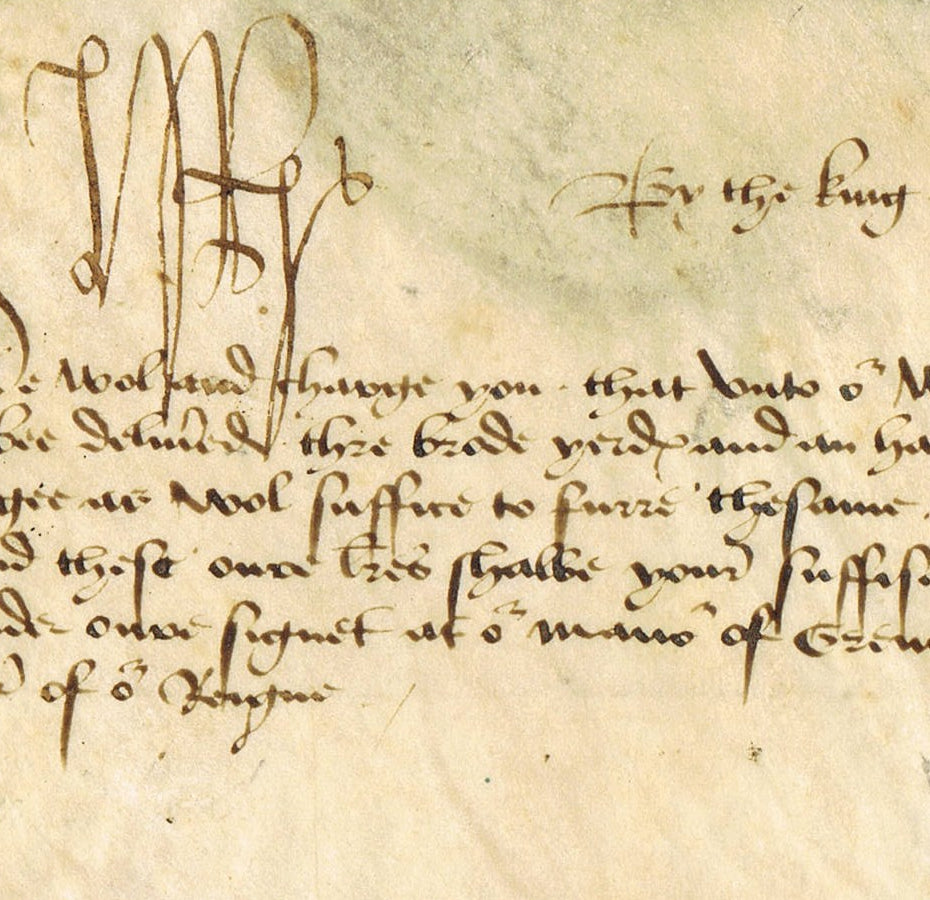 By the king
We wol and charge you that vnto oʳ W
bee deliu͛ed thre brode yerdꝭ and an ha
gee as wol suffice to furre thesame
d thest oure lr̃es shalbe your suffisi
der oure signet at oʳ manoʳ of Gren
of oʳ Reigne